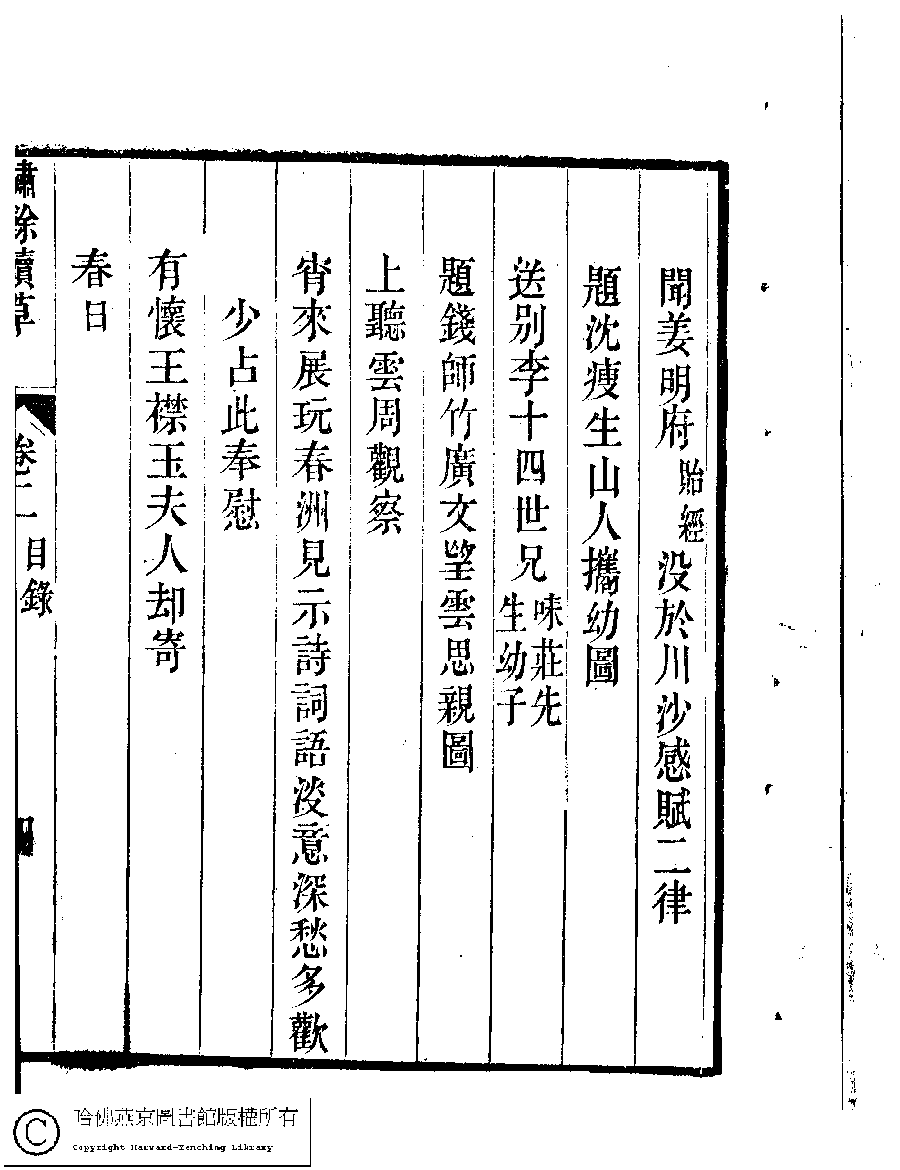 聞姜明府貽經没於川沙感賦二律
題沈痩生山人攜幼圖
送别李十四世兄味莊先生幼子
題錢師竹廣文望雲思親圖
上聽雲周觀察
宵來展玩春洲見示詩詞語淡意深愁多歡
少占此奉慰
有懷王襟玉夫人却寄
春日
繡餘續草
卷二 目錄
四
哈佛燕京圖書館版權所有
Copyright Harvard-Yenching Library